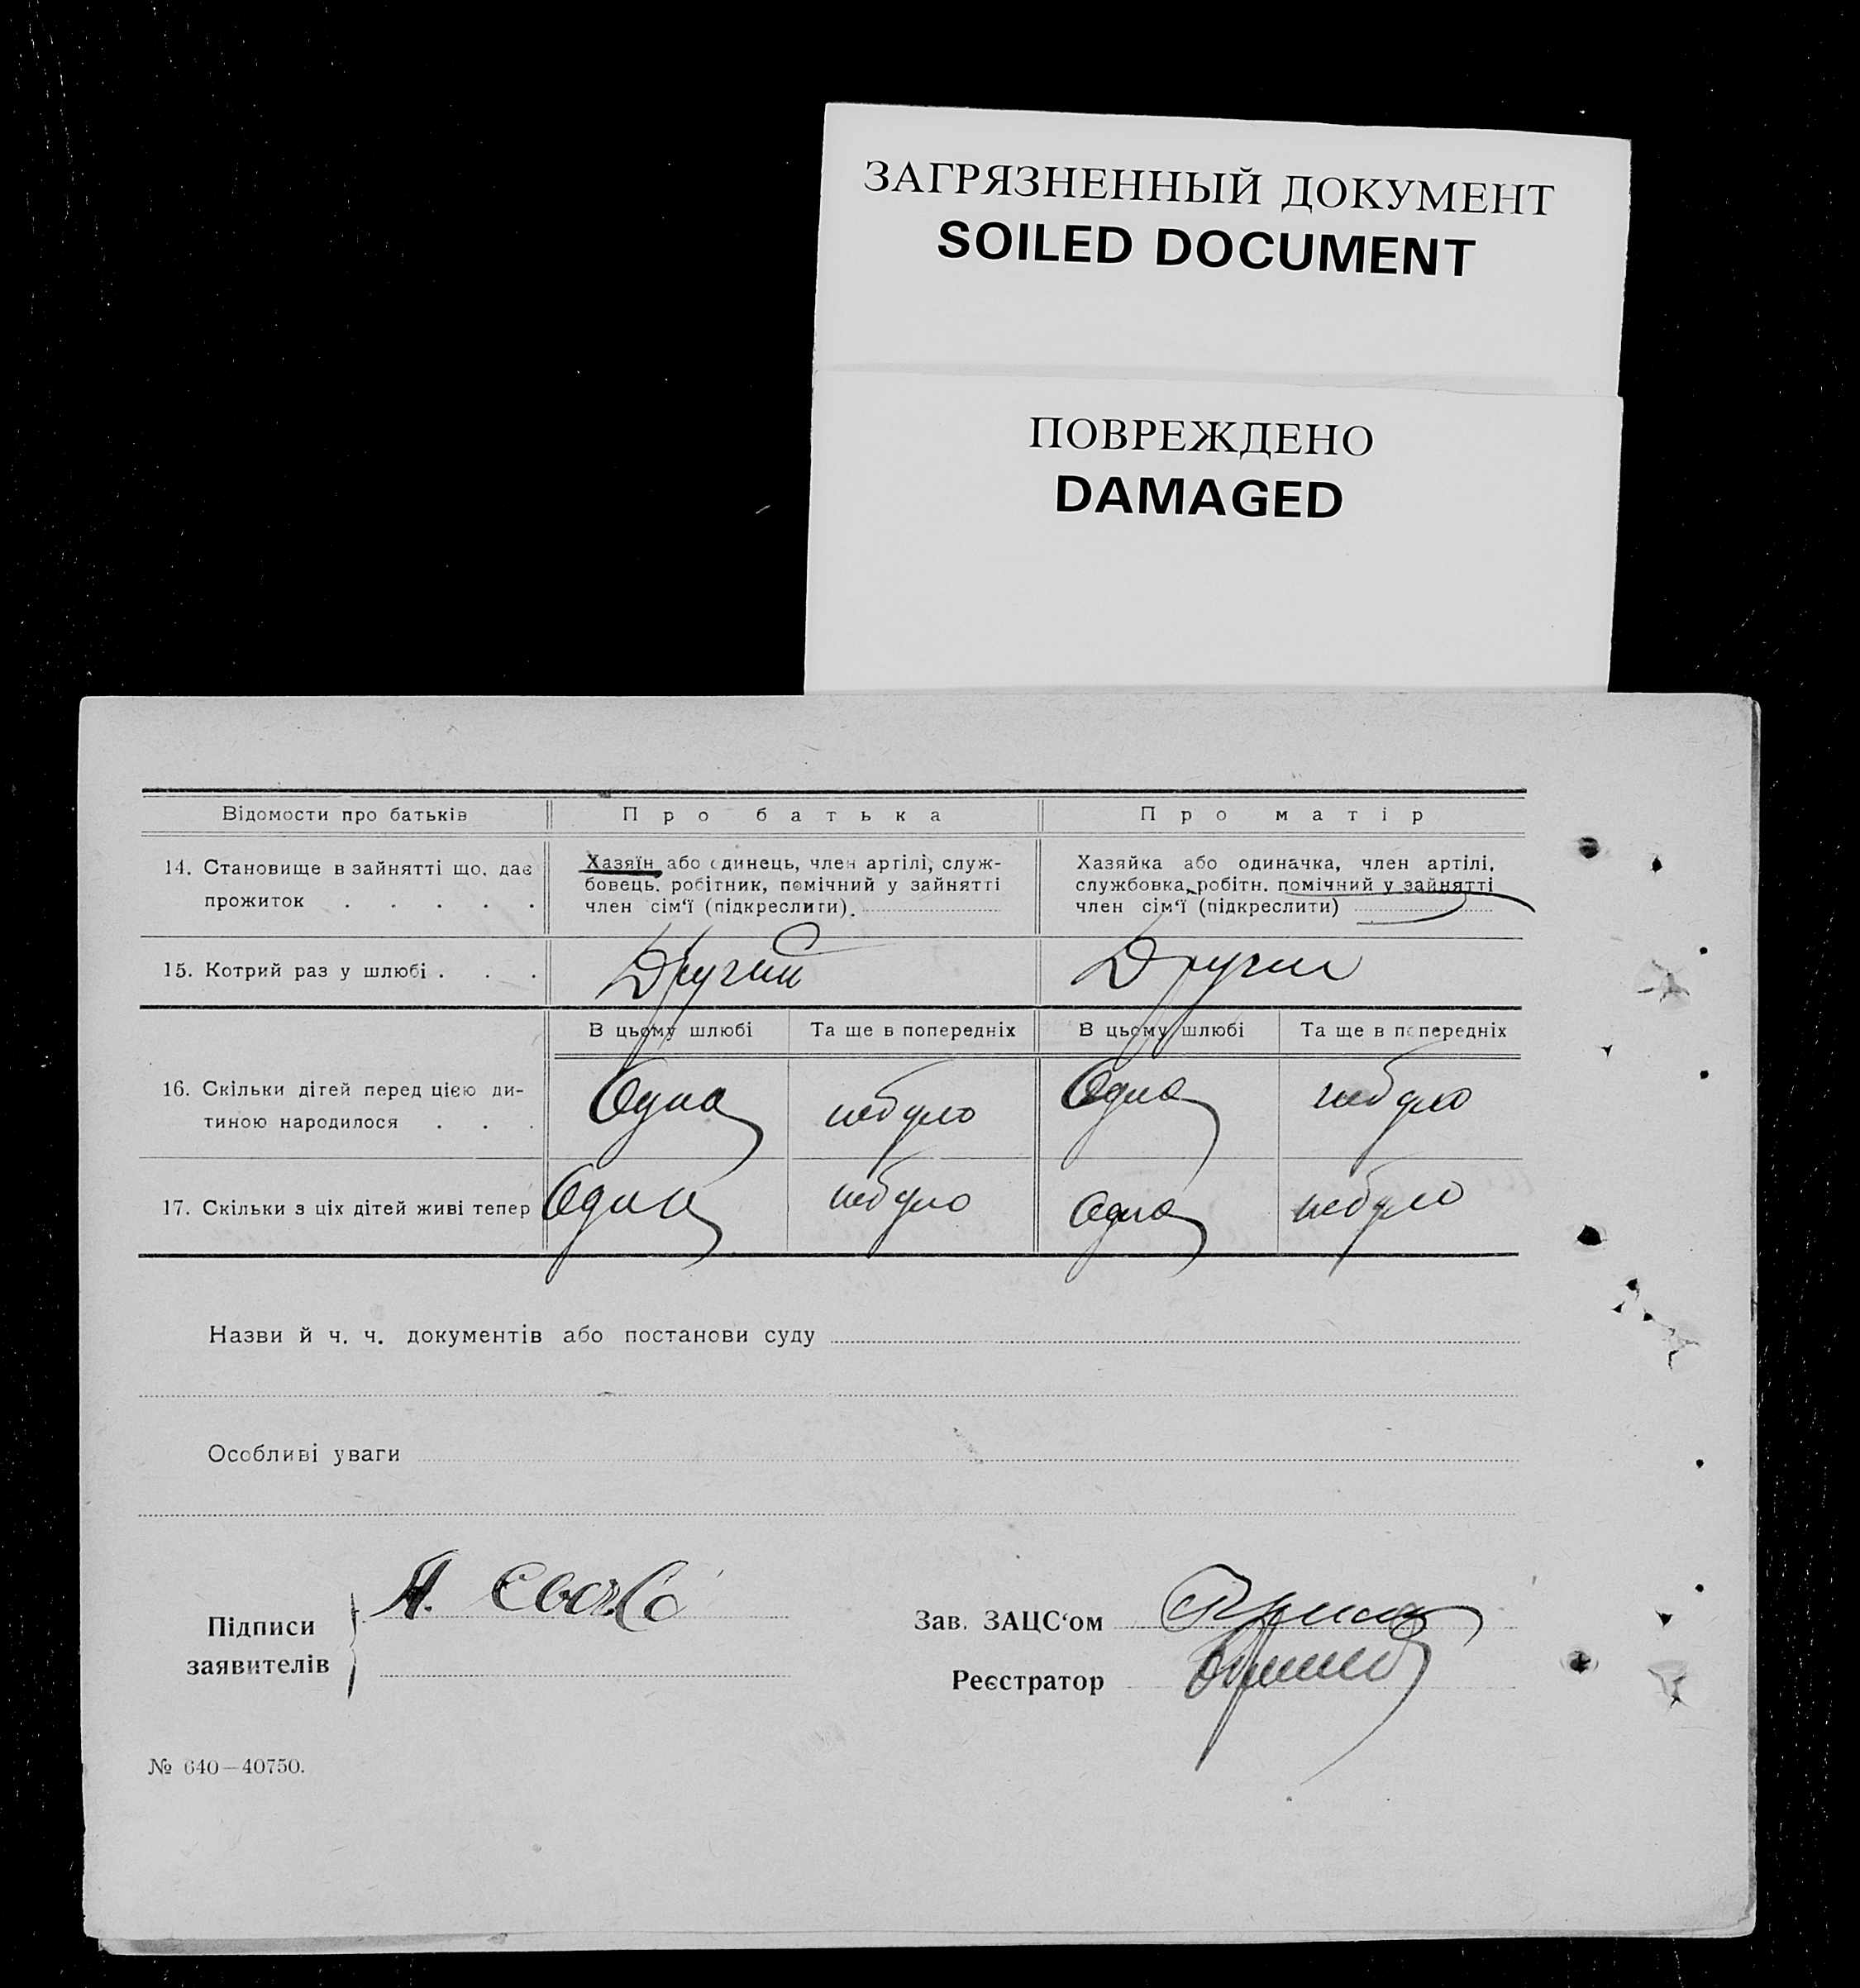 ЗАГРЯЗНЕННЫЙ ДОКУМЕНТ
SOILED DOCUMENT
ПОВРЕЖДЕНО
DAMAGED
Відомости про батьків Про батька Про матір
14. Становище в зайнятті що, дає Хазяїн або єдинець, член артілі, служ- Хазяйка або одиначка, член артілі,
прожиток . . . . . бовець, робітник, помічний у зайнятті службовка, робітн. помічний у зайнятті
член сім‘ї (підкреслити). член сім‘ї (підкреслити)
15. Котрий раз у шлюбі . . . Другий Другий
В цьому шлюбі Та ще в попередніх В цьому шлюбі Та ще в попередніх
16. Скільки дітей перед цією ди-
тиною народилося . . . Одна небуло Одна небуло
17. Скільки з ціх дітей живі тепер Одна небуло Одна небуло
Назви й ч. ч. документів або постанови суду
Особливі уваги
Підписи
заявителів
Зав. ЗАЦС‘ом
Реєстратор
№ 640—40750.